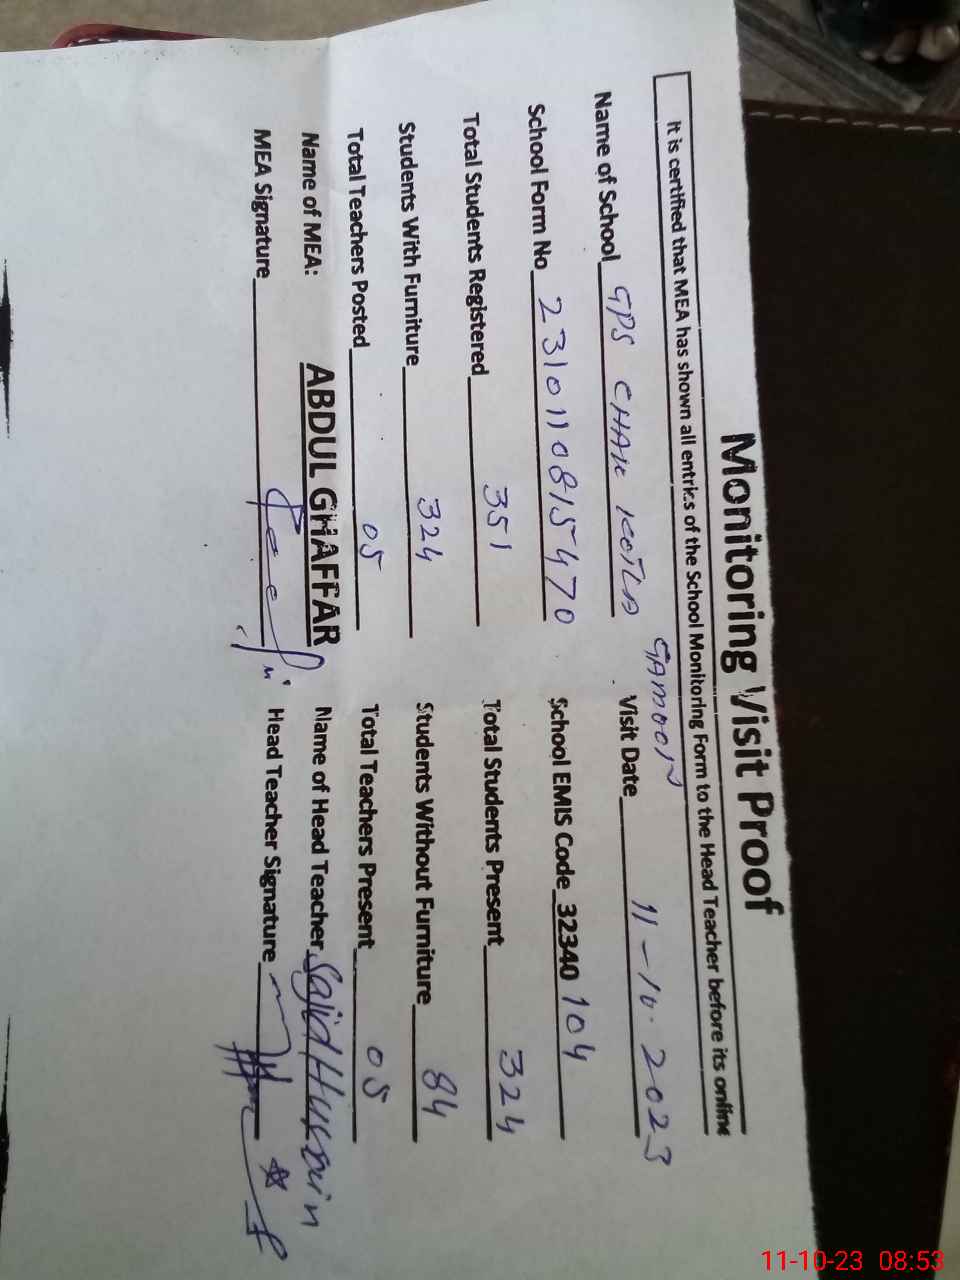 Monitoring Visit Proof
It is certified that MEA has shown all entries of the School Monitoring Form to the Head Teacher before its online
Name of School GPS CHAK KOTLA GAMOON Visit Date 11-10-2023
School Form No 2310110815470 School EMIS Code 32340104
Total Students Registered 351 Total Students Present 324
Students With Furniture 324 Students Without Furniture 84
Total Teachers Posted 05 Total Teachers Present 05
Name of MEA: ABDUL GHAFFAR Name of Head Teacher Sajid Hussain
MEA Signature Head Teacher Signature
11-10-23 08:53